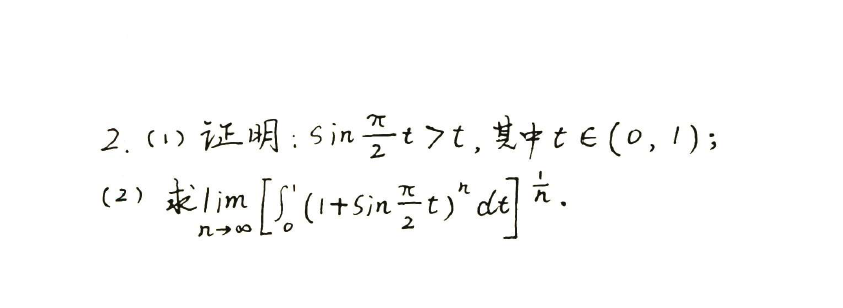 2. (1) 证明: sin π/2 t > t, 其中 t ∈ (0, 1);
(2) 求 lim_{n→∞} [∫_0^1 (1+sin π/2 t)^n dt]^{1/n}.